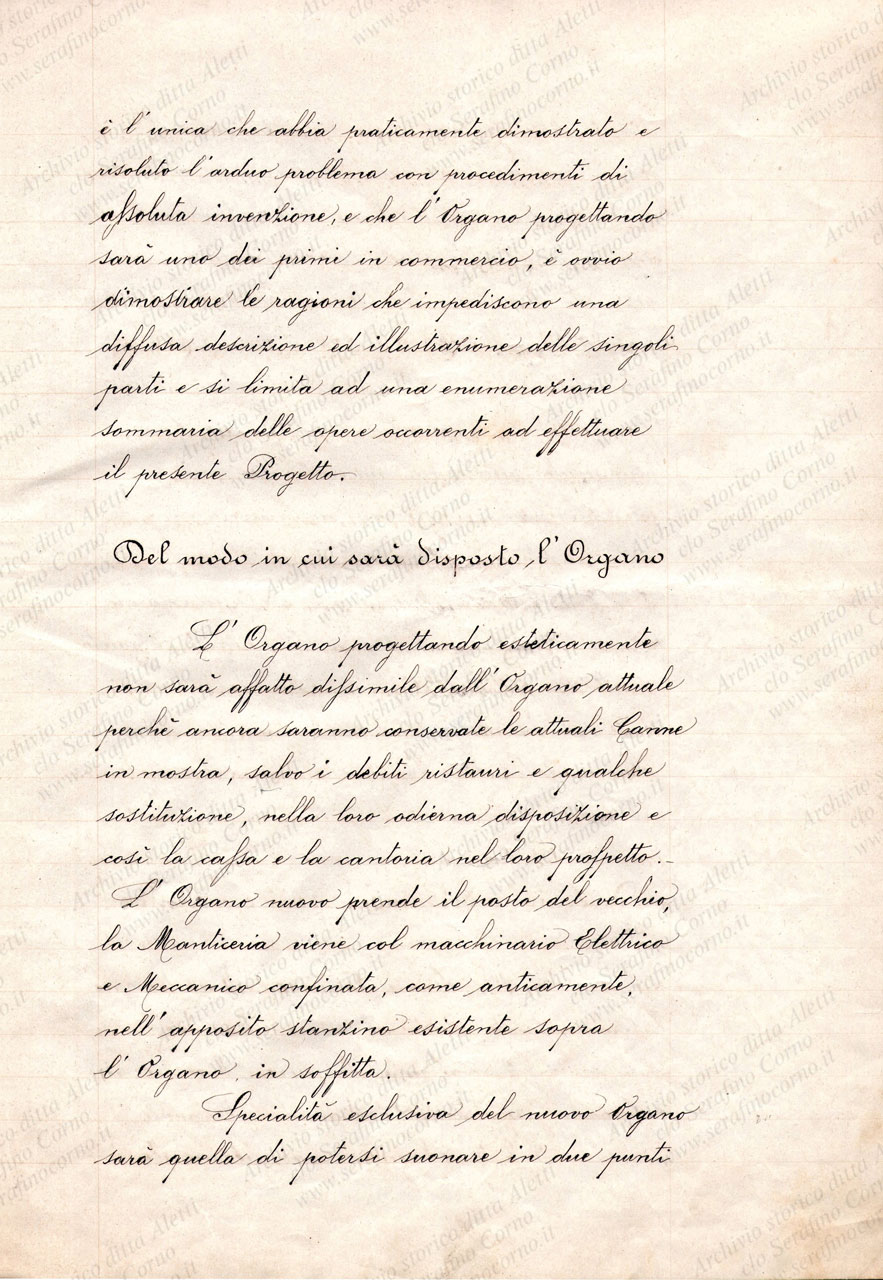 è l'unica che abbia praticamente dimostrato e
risoluto l'arduo problema con procedimenti di
assoluta invenzione, e che l'Organo progettando
sarà uno dei primi in commercio, è ovvio
dimostrare le ragioni che impediscono una
diffusa descrizione ed illustrazione delle singoli
parti e si limita ad una enumerazione
sommaria delle opere occorrenti ad effettuare
il presente Progetto.
Del modo in cui sarà disposto l'Organo
L'Organo progettando esteticamente
non sarà affatto dissimile dall'Organo attuale
perchè ancora saranno conservate le attuali Canne
in mostra, salvo i debiti ristauri e qualche
sostituzione, nella loro odierna disposizione e
così la cassa e la cantoria nel loro prospetto.-
L'Organo nuovo prende il posto del vecchio,
la Manticeria viene col macchinario Elettrico
e Meccanico confinata, come anticamente,
nell'apposito stanzino esistente sopra
l'Organo in soffitta.
Specialità esclusiva del nuovo Organo
sarà quella di potersi suonare in due punti
Archivio storico ditta Aletti
c/o Serafino Corno
www.serafinocorno.it